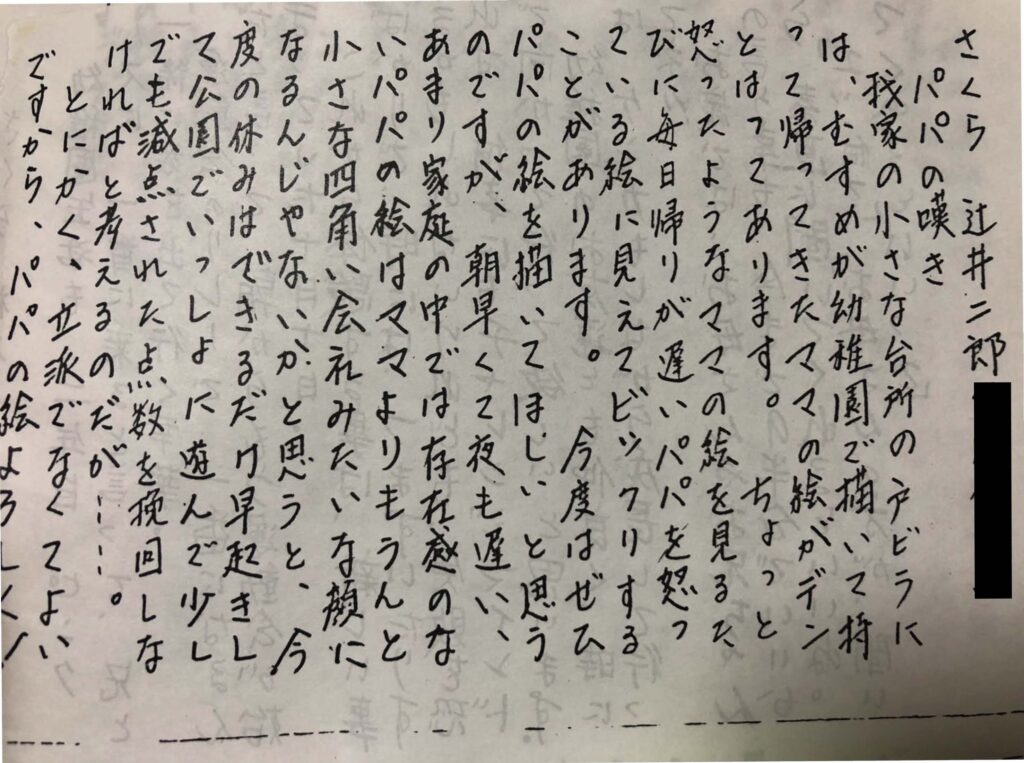 さくら 辻井二郎
パパの嘆き
我家の小さな台所の戸ビラに
は、むすめが幼稚園で描いて持
って帰ってきたママの絵がデン
とはってあります。ちょっと
怒ったようなママの絵を見るた
びに毎日帰りが遅いパパを怒っ
ている絵に見えてビックリする
ことがあります。今度はぜひ
パパの絵を描いてほしいと思う
のですが、朝早くて夜も遅い、
あまり家庭の中では存在感のな
いパパの絵はママよりもうんと
小さな四角い会社みたいな顔に
なるんじゃないかと思うと、今
度の休みはできるだけ早起きし
て公園でいっしょに遊んで少し
でも減点された点数を挽回しな
ければと考えるのだが……。
とにかく、立派でなくてよい
ですから、パパの絵よろしく!